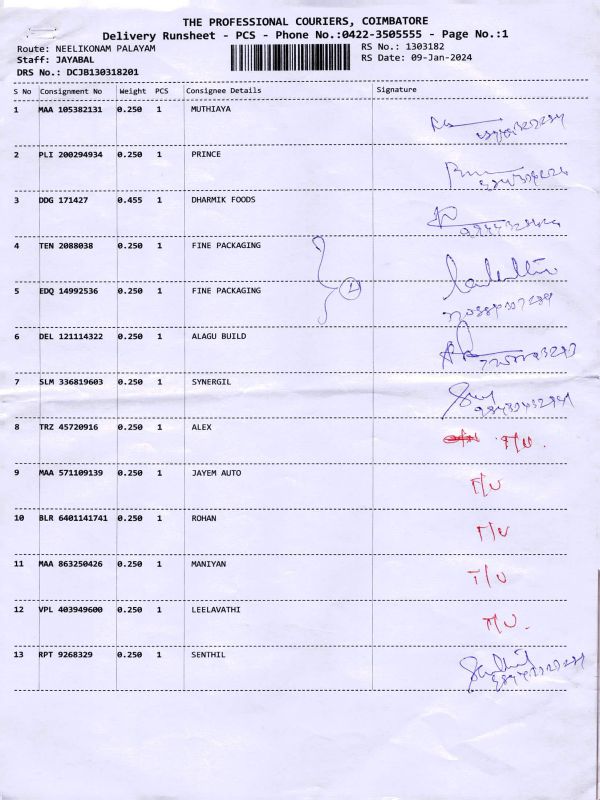 THE PROFESSIONAL COURIERS, COIMBATORE
Delivery Runsheet - PCS - Phone No.:0422-3505555 - Page No.:1
Route: NEELIKONAM PALAYAM RS No.: 1303182
Staff: JAYABAL RS Date: 09-Jan-2024
DRS No.: DCJB130318201
S No Consignment No Weight PCS Consignee Details Signature
1 MAA 105382131 0.250 1 MUTHIAYA
2 PLI 200294934 0.250 1 PRINCE
3 DDG 171427 0.455 1 DHARMIK FOODS
4 TEN 2088038 0.250 1 FINE PACKAGING
5 EDQ 14992536 0.250 1 FINE PACKAGING
6 DEL 121114322 0.250 1 ALAGU BUILD
7 SLM 336819603 0.250 1 SYNERGIL
8 TRZ 45720916 0.250 1 ALEX T/U.
9 MAA 571109139 0.250 1 JAYEM AUTO T/U
10 BLR 6401141741 0.250 1 ROHAN T/U
11 MAA 863250426 0.250 1 MANIYAN T/U
12 VPL 403949600 0.250 1 LEELAVATHI T/U.
13 RPT 9268329 0.250 1 SENTHIL